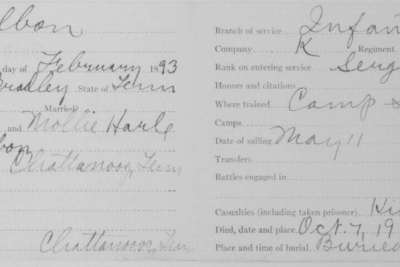 lbon
day of February 1893
Bradley State of Tenn
Married?
and Mollie Harle
bon
Chattanooga Tenn
Chattanooga Tenn
Branch of service Infan
Company K Regiment
Rank on entering service Serg
Honors and citations
Where trained Camp S
Camps
Date of sailing May 11
Transfers
Battles engaged in
Casualties (including taken prisoner). Ki
Died, date and place Oct. 7, 19
Place and time of burial Buried